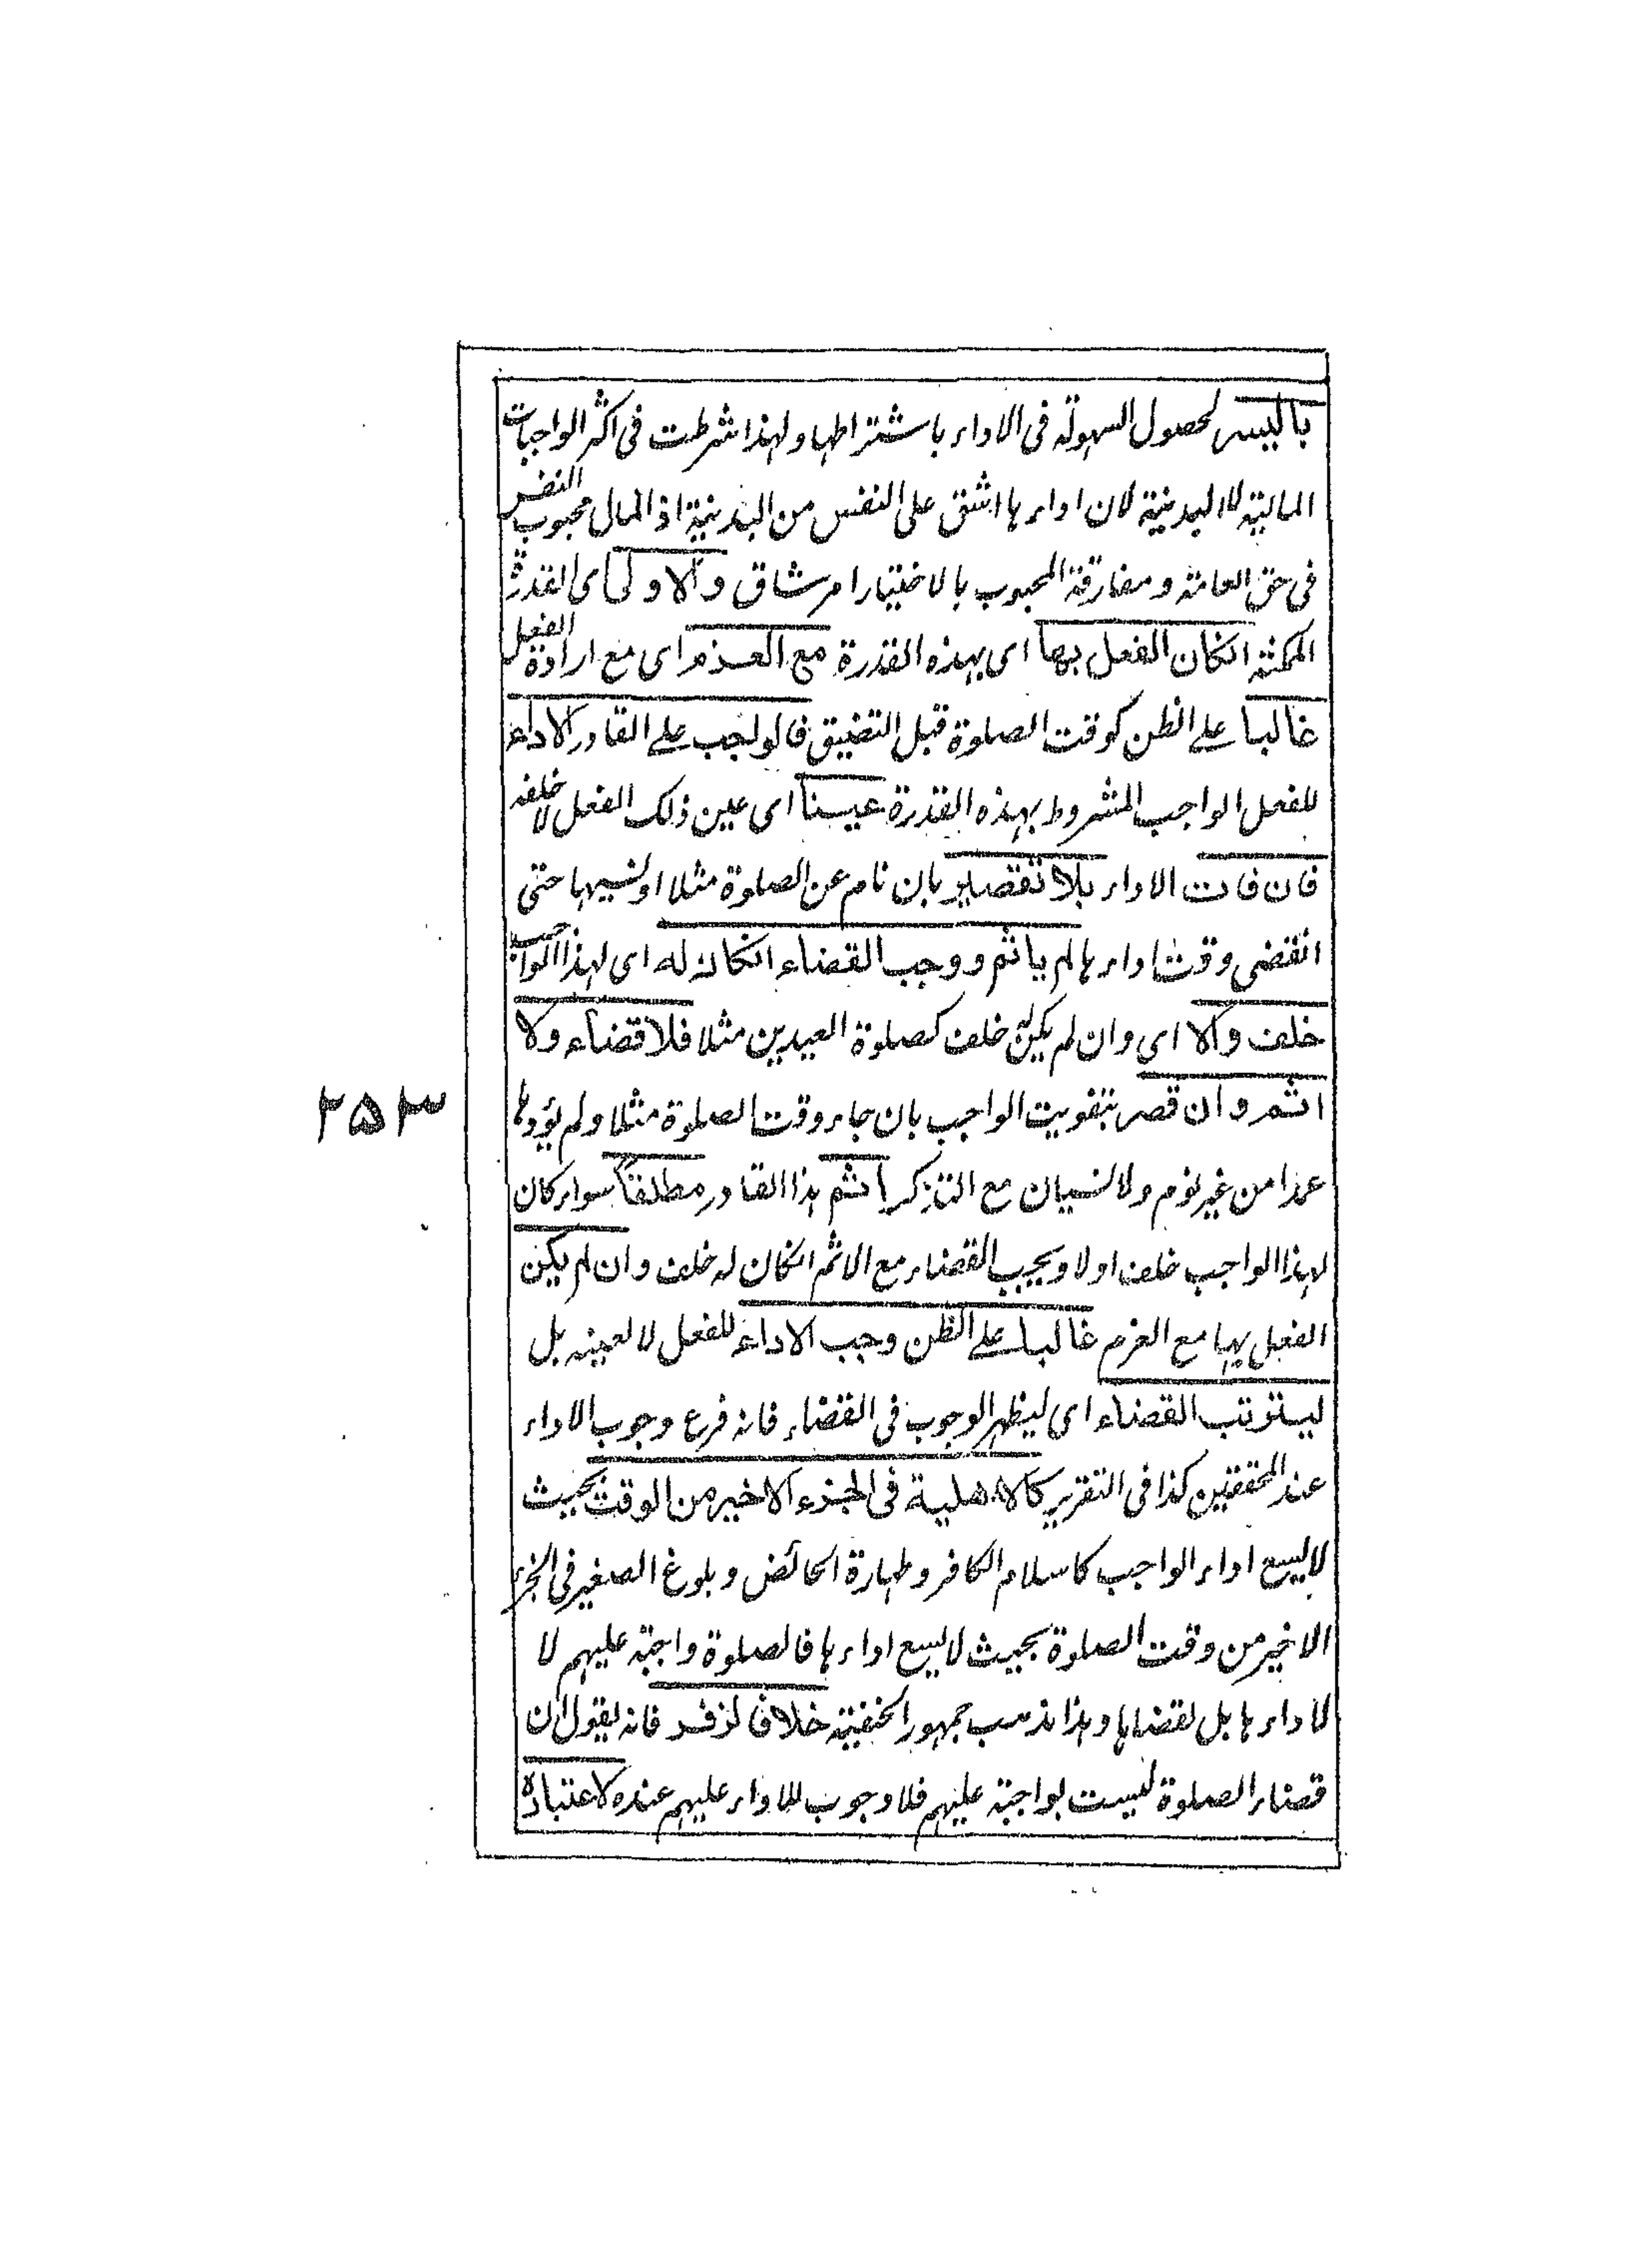 باليسر لحصول السهولة فى الاداء باشتراطها ولهذا شرطت فى اكثر الواجبات
المالية لا البدنية لان اداءها اشق على النفس من البدنية اذ المال محبوب النفس
فى حق العامة ومفارقة المحبوب بالاختيار امر شاق والاولى اى القدرة
الممكنة انكان الفعل بها اى بهذه القدرة مع العزم اى مع ارادة الفعل
غالبا على الظن كوقت الصلوة قبل التضييق فالواجب على القادر الاداء
للفعل الواجب المشروط بهذه القدرة عينا اى عين ذلك الفعل لا خلفه
فان فات الاداء بلا تقصير بان نام عن الصلوة مثلا او نسيها حتى
انقضى وقت اداءها لم ياثم ووجب القضاء انكان له اى لهذا الواجب
خلف والا اى وان لم يكن له خلف كصلوة العيدين مثلا فلا قضاء ولا
اثم وان قصر بتفويت الواجب بان جاء وقت الصلوة مثلا ولم يؤدها
عمدا من غير نوم ولا نسيان مع التذكر اثم هذا القادر مطلقا سواء كان
لهذا الواجب خلف او لا ويجب القضاء مع الاثم انكان له خلف وان لم يكن
الفعل بها مع العزم غالبا على الظن وجب الاداء للفعل لا لعينه بل
ليترتب القضاء اى ليظهر الوجوب فى القضاء فانه فرع وجوب الاداء
عند المحققين كذا فى التقرير كالاهلية فى الجزء الاخير من الوقت بحيث
لا يسع اداء الواجب كاسلام الكافر وطهارة الحائض وبلوغ الصغير فى الجزء
الاخير من وقت الصلوة بحيث لا يسع اداءها فالصلوة واجبة عليهم لا
لاداءها بل لقضاها وهذا مذهب جمهور الحنفية خلافا لزفر فانه يقول ان
قضاء الصلوة ليست بواجبة عليهم فلا وجوب للاداء عليهم عنده لاعتباره
۲۵۳